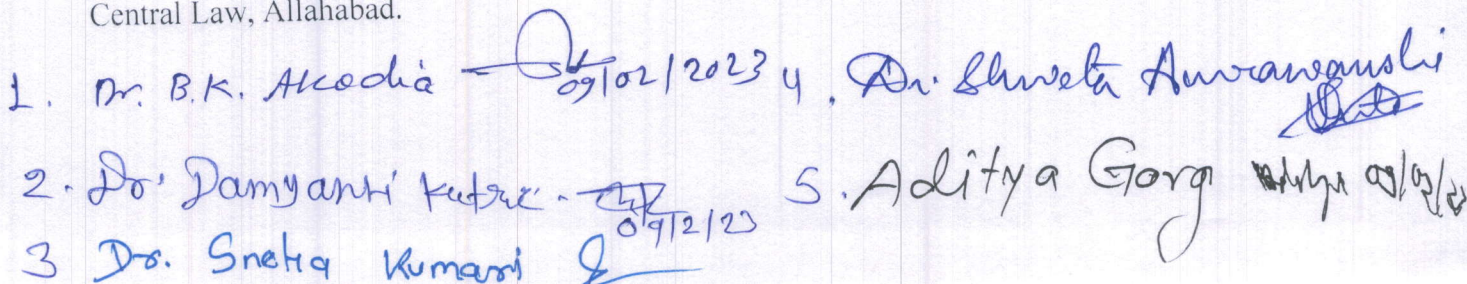 Central Law, Allahabad.
1. Dr. B.K. Akodia 09/02/2023
2. Dr. Damyanti Katre. 09/2/23
3 Dr. Sneha Kumari
4. Dr. Shweta
5. Aditya Garg